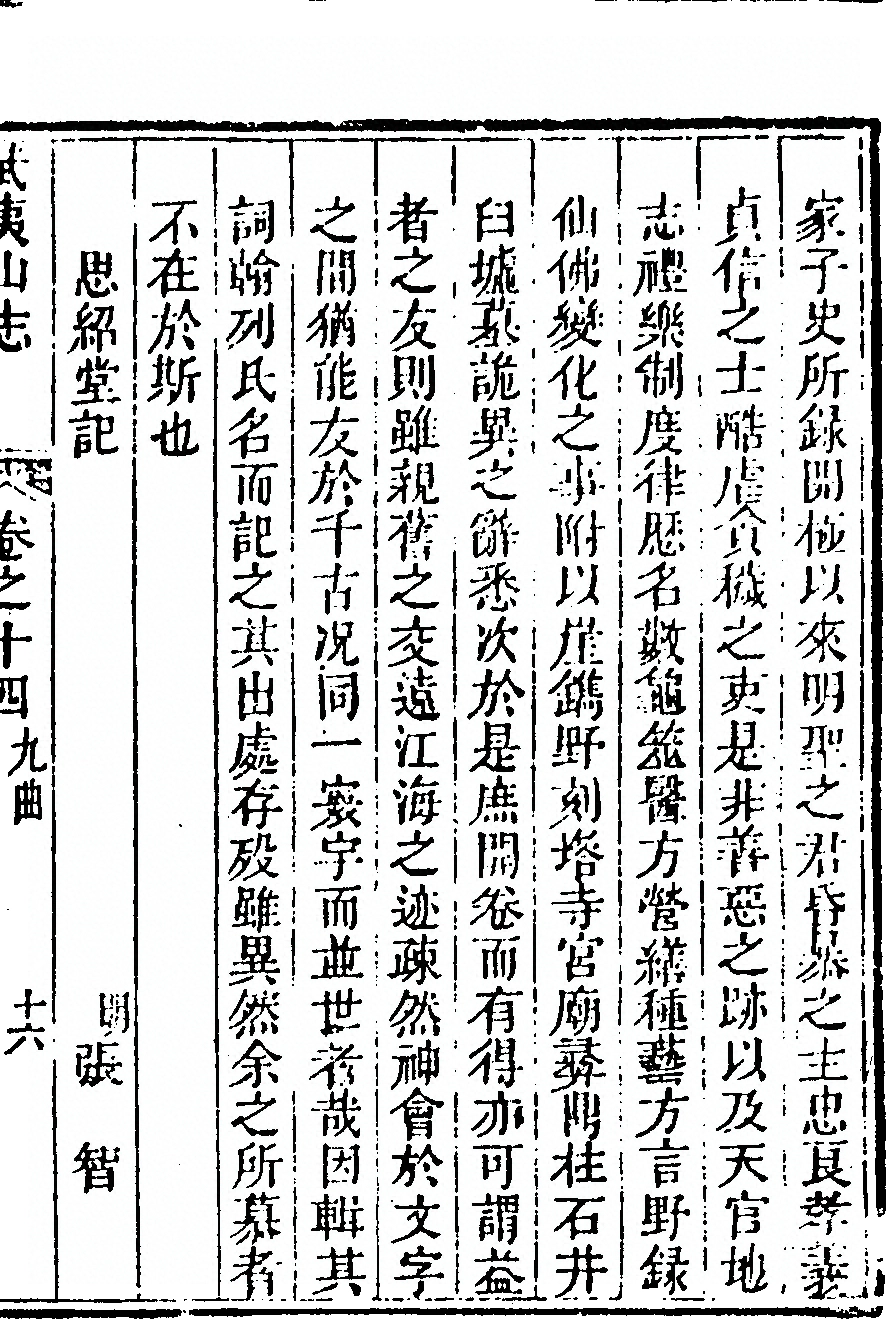 家子史所錄開極以來明聖之君昏暴之主忠良孝義
貞信之士酷虐貪穢之吏是非善惡之跡以及天官地
志禮樂制度律歷名數龜筮醫方營繕種藝方言野錄
仙佛變化之事附以崖鐫野刻塔寺宮廟彞鼎柱石井
臼墟墓詭異之辭悉次於是庶開卷而有得亦可謂益
者之友則雖親舊之交遠江海之迹疎然神會於文字
之間猶能友於千古况同一寰宇而並世者哉因輯其
詞翰列氏名而記之其出處存歿雖異然余之所慕者
不在於斯也
思紹堂記 明張智
武夷山志 卷之十四 九曲 十六